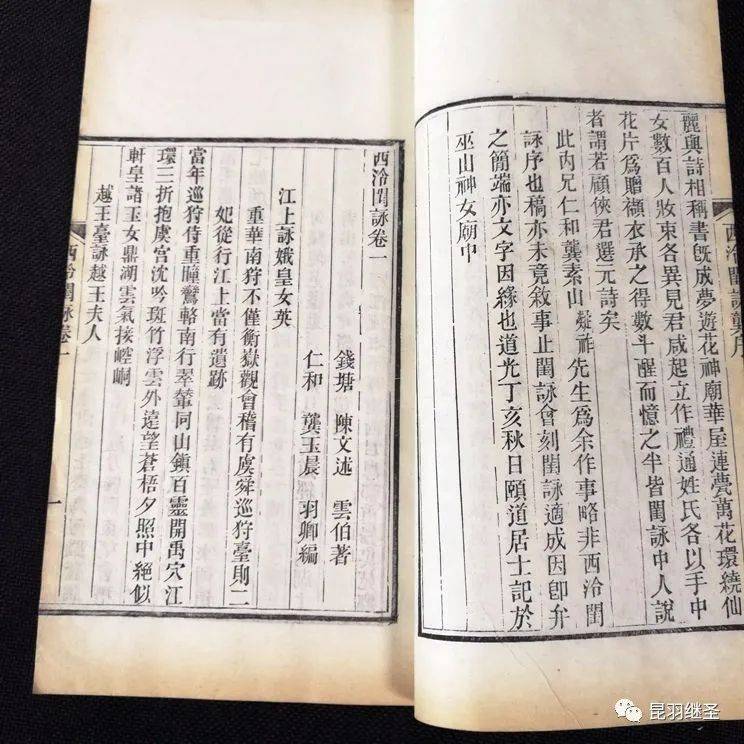 麗與詩相稱書旣成夢遊花神廟華屋連甍萬花環繞仙
女數百人妝束各異見君咸起立作禮通姓氏各以手中
花片爲贈襭衣承之得數斗醒而憶之半皆閨詠中人說
者謂若顧俠君選元詩矣
此內兄仁和龔素山凝祚先生爲余作事略非西泠閨
詠序也稿亦未竟敘事止閨詠會刻閨詠適成因卽弁
之簡端亦文字因緣也道光丁亥秋日頤道居士記於
巫山神女廟中
西泠閨詠龔序
西泠閨詠卷一
錢塘 陳文述 雲伯著
仁和 龔玉晨 羽卿編
江上詠娥皇女英
重華南狩不僅衡嶽觀會稽有虞舜巡狩臺則二
妃從行江上當有遺跡
當年巡狩侍重瞳鸞輅南行翠輦同山鎭百靈開禹穴江
環三折抱虞宮沈吟斑竹浮雲外遠望蒼梧夕照中絕似
軒皇諸玉女鼎湖雲氣接崆峒
越王臺詠越王夫人
西泠閨詠卷一
一
昆羽继圣